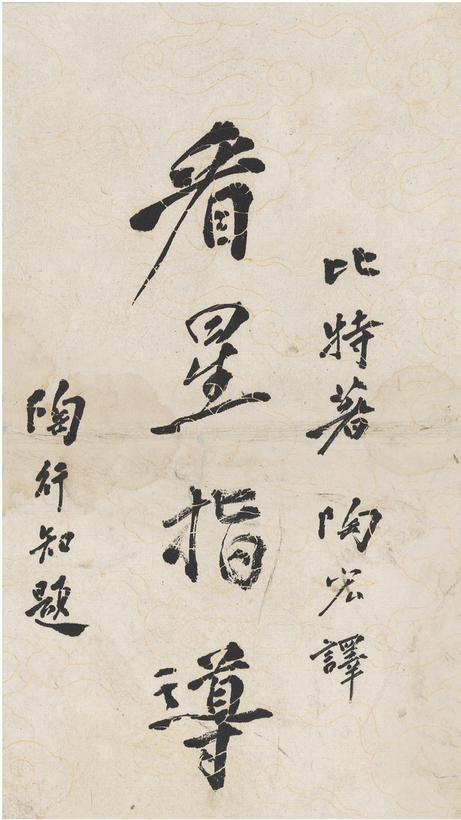 比特著 陶宏譯
看星指導
陶行知題